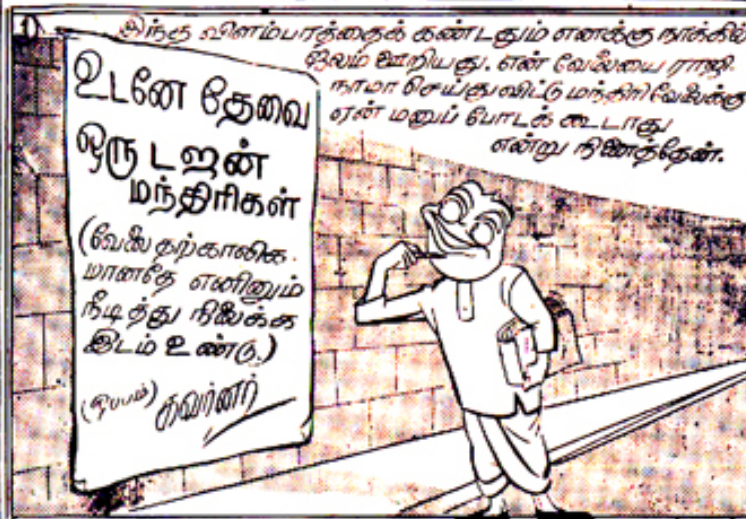 இந்த விளம்பரத்தைக் கண்டதும் எனக்கு நாக்கில்
ஜலம் ஊறியது. என் வேலையை ராஜி-
நாமா செய்துவிட்டு மந்திரி வேலைக்கு
ஏன் மனுப் போடக் கூடாது
என்று நினைத்தேன்.
உடனே தேவை
ஒரு டஜன்
மந்திரிகள்
(வேலை தற்காலிக-
மானதே எனினும்
நீடித்து நிலைக்க
இடம் உண்டு.)
(ஒப்பம்) கவர்னர்